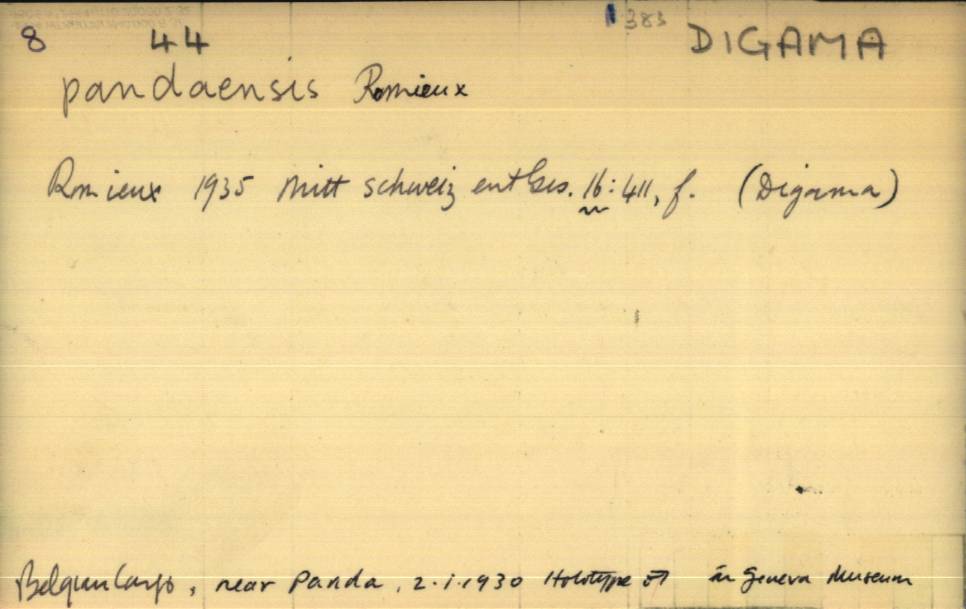 8 44 383 DIGAMA
pandaensis Romieux
Romieux 1935 Mitt schweiz ent Ges. 16: 411, f. (Digama)
Belgian Congo, near Panda, 2.i.1930 Holotype ♂ in Geneva Museum